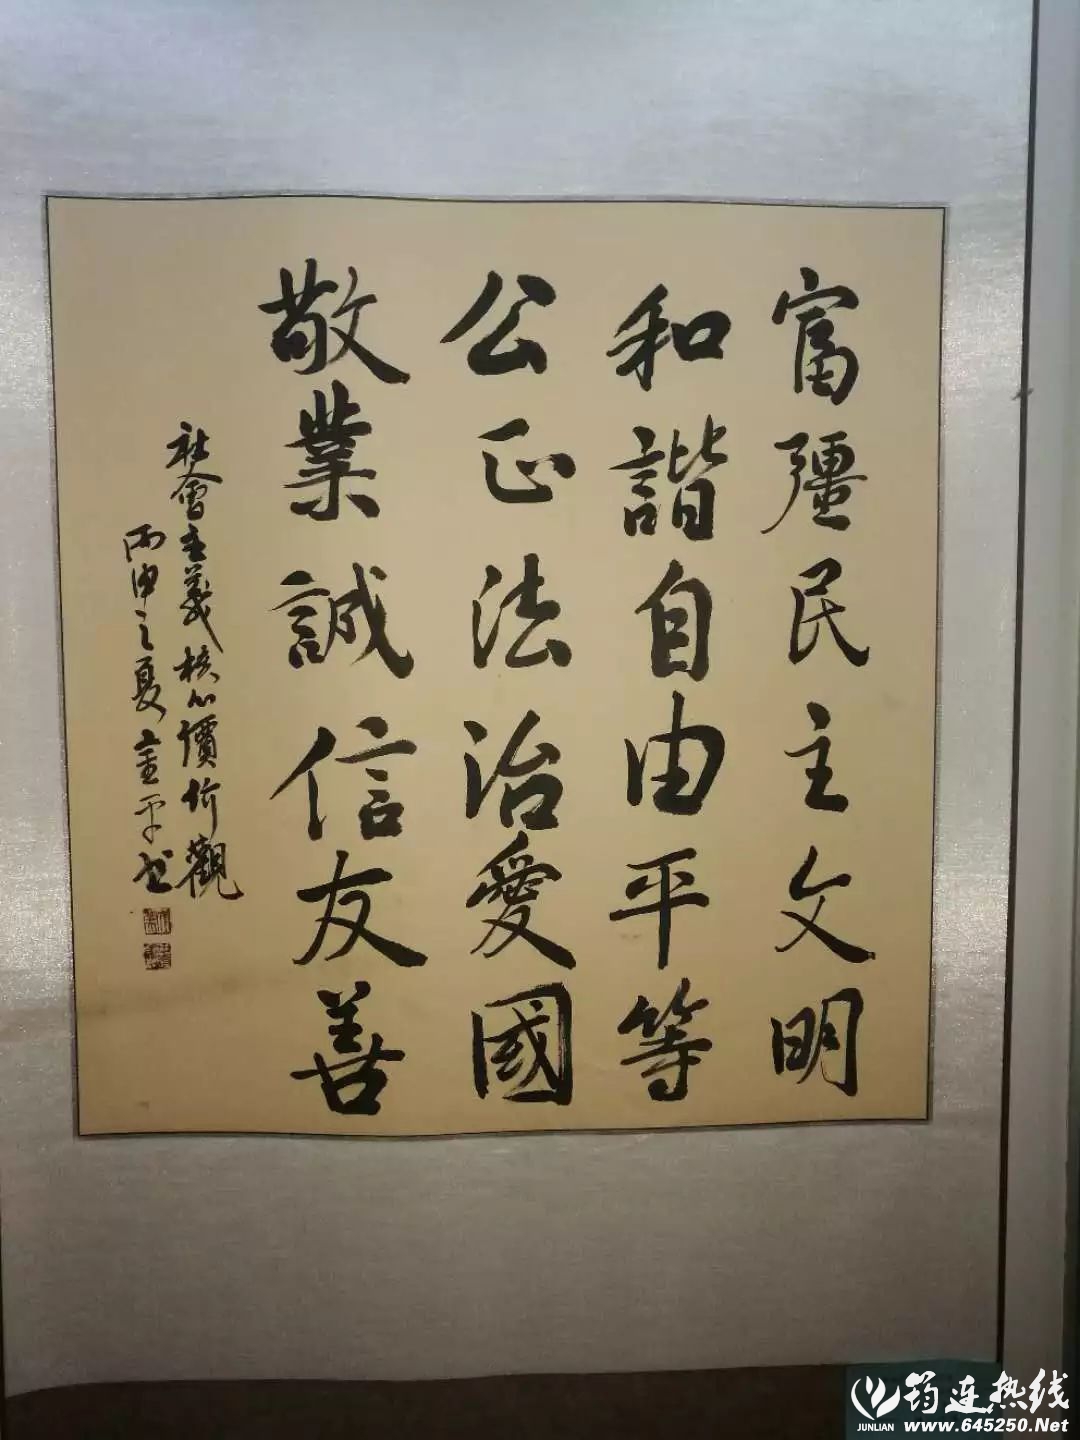 富彊民主文明
和諧自由平等
公正法治愛國
敬業誠信友善
社會主義核心價值觀
丙申之夏
书
筠连热线
JUNLIAN
www.645250.Net